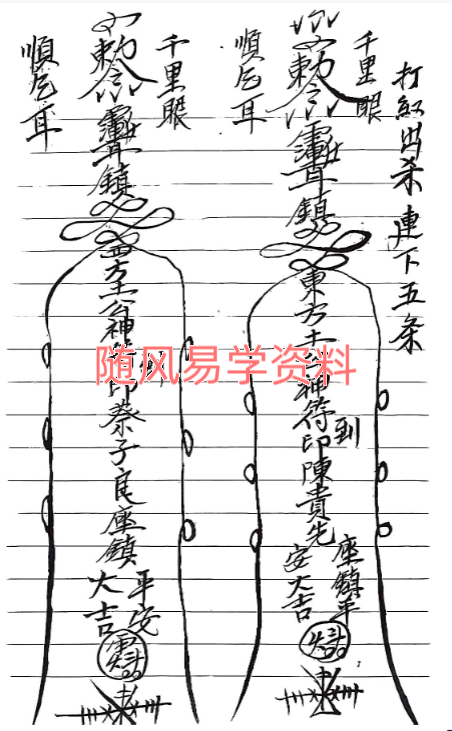 打紅出杀連下五条
千里眼
順風耳
敕令
鎮
東方土公神符到
印陳貴先
座鎮平
安大吉
千里眼
順風耳
敕令
鎮
西方土公神符到
印蔡子良座鎮
平安
大吉
随风易学资料